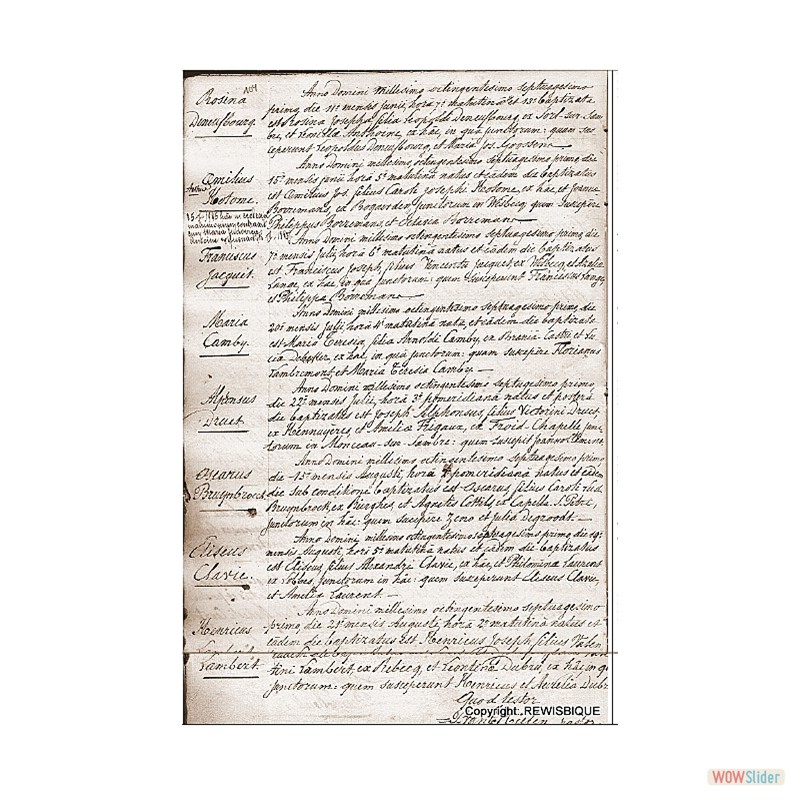 104
Rosina
Deneufbourg.
Anno Domini millesimo octingentesimo septuagesimo
primo, die 11ª mensis junii, hora 7ª matutina et 13ª baptizata
est Rosina Josepha filia Leopoldi Deneufbourg, ex Sort-sur-Sam
bre, et Anthoine, ex hàc, in quâ junctorum: quam sus
ceperunt Leopoldus Deneufbourg, et Maria Jos. Goossens
Æmilius
Hotome.
Anno Domini millesimo, octingentesimo septuagesimo primo, die
15ª mensis junii horâ 5ª matutinâ natus et eâdem die baptizatus
est Æmilius Jos. filius Caroli Josephi Hotome, ex hâc, et Joanna
Borremans, ex Bogaerden, junctorum in Wisbecq: quem suscepêre
Philippus Borremans, et Octavia Borremans
Franciscus
Jacquet.
Anno Domini millesimo octingentesimo septuagesimo primo, die
7ª mensis julii, horâ 6ª matutinâ natus et eâdem die baptizatus
est Franciscus Joseph, filius Vincentii Jacquet, ex Wisbecq, et
Lange, ex hâc, in quâ junctorum: quem susceperunt Franciscus Lange,
et Philippa Borremans
Maria
Camby.
Anno Domini millesimo octingentesimo septuagesimo primo, die
20ª mensis julii, horâ 4ª matutinâ nata, et eâdem die baptizata
est Maria Teresia, filia Arnoldi Camby, ex Brania Castri et Lu
cia Dekeyser, ex hâc, in quâ junctorum: quam suscepêre Florianus
Lambremont, et Maria Teresia Camby.
Alfonsus
Druet.
Anno Domini millesimo octingentesimo septuagesimo primo,
die 22ª menses Julii, horâ 3ª pomeridianâ natus et posterâ
die baptizatus est Joseph Alphonsus, filius Victorini Druet,
ex Hennuyeres, et Amelia Frigaux, ex Froid-Chapelle, junc
torum in Monceau-sur-Sambre: quem suscepit Joannes Clemens
Oscarus
Bruynbroeck
Anno Domini millesimo, octingentesimo, septuagesimo primo
die 15ª mensis Augusti, horâ 4ª pomeridianâ natus et eâdem
die sub conditione baptizatus est Oscarus, filius Caroli Lud.
Bruynbroeck, ex Burght, et Agnetis Cottils, ex Capella S. Petri,
junctorum in hâc: quem suscepêre Zeno et Julia Degroodt.
Eliseus
Clavie.
Anno Domini millesimo, octingentesimo, septuagesimo primo, die 19ª
mensis Augusti, horâ 5ª matutinâ natus et eâdem die baptizatus
est Eliseus, filius Alexandri Clavie, ex hâc, et Philomina Laurent
ex Lobbes, junctorum in hâc: quem susceperunt Eliseus Clavie,
et Amelia Laurent.
Henricus
Lambert.
Anno Domini millesimo octingentesimo septuagesimo
primo, die 21ª mensis Augusti, horâ 2ª matutinâ natus et
eâdem die baptizatus est Henricus Joseph, filius Valen
tini Lambert, ex Rebecq, et Leontina Dubru, ex hâc, in quâ
junctorum: quem susceperunt Henricus et Aurelia Dubr
Quod testor
Copyright: REWISBIQUE
WOWSlider